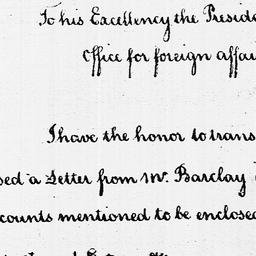 To his Excellency the Preside
Office for foreign affai
I have the honor to trans
sed a Letter from Mr. Barclay
counts mentioned to be enclosed